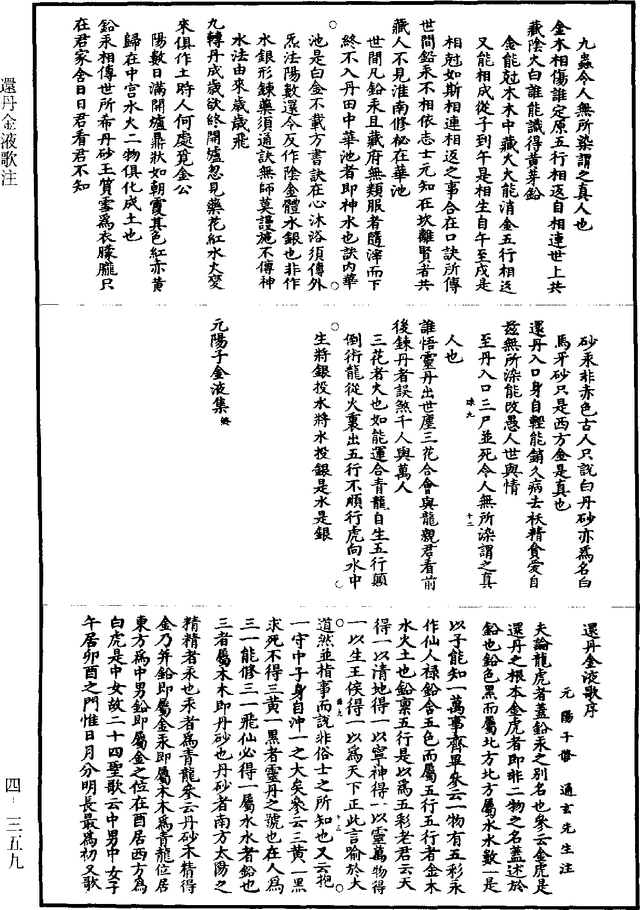 九蟲令人無所染謂之真人也
金木相傷誰定原五行相返自相連世上共
藏陰火白誰能識得黃芽鉛
金能尅木木中藏火火能消金五行相返
又能相成從子到午是相生自午至戌是
相尅如斯相連相返之事合在口訣所傳
世間鉛汞不相依志士元知在坎離賢者共
藏人不見淮南修秘在華池
世間凡鉛汞且藏府無類服者隨滓而下
終不入丹田中華池者即神水也訣内華
池是白金不載方書訣在心沐浴須傳外
炁法陽數還令反作陰金體水銀也非作
水銀形鍊藥須通訣無師莫謾施不傳神
水法由來歲歲飛
九轉丹成歲欲終開爐忽見藥花紅水火變
來俱作土時人何處覓金公
陽數日滿開爐鼎狀如朝霞其色紅亦黃
歸在中宮水火二物俱化成土也
鉛汞相傳世所希丹砂玉質雪爲衣朦朧只
在君家舍日日君看君不知
砂汞非赤色古人只說白丹砂亦爲名白
馬牙砂只是西方金是真也
還丹入口身自輕能銷久病去袄精貪愛自
兹無所染能改愚人世與情
至丹入口三尸並死令人無所染謂之真
人也
誰悟靈丹出世塵三花合會與龍親君看前
後鍊丹者誤煞千人與萬人
三花者火也如能運合青龍自生五行顛
倒術龍從火裏出五行不順行虎向水中
生將銀投水將水投銀是水是銀
元陽子金液集終
還丹金液歌序
元陽子脩 通玄先生注
夫論龍虎者蓋鉛汞之別名也參云金虎是
還丹之根本金虎者即非二物之名蓋述於
鉛也鉛色黑而屬北方北方屬水水數一是
以子能知一萬事齊畢參云一物有五彩永
作仙人祿鉛合五色而屬五行五行者金木
水火土也鉛禀五行是以爲五彩老君云天
得一以清地得一以寧神得一以靈萬物得
一以生王侯得一以爲天下正此言喻於大
道然並指事而說非俗士之所知也又云抱
一守中子身自沖一之大矣參云三黃一黑
求死不得三黃一黑者靈丹之號也在人爲
三一能修三一飛仙必得一屬水水者鉛也
三者屬木木即丹砂也丹砂者南方太陽之
精精者汞也汞者爲青龍參云丹砂木精得
金乃并鉛即屬金汞即屬木木爲青龍位居
東方爲中男鉛即屬金金之位在酉居西方爲
白虎是中女故二十四聖歌云中男中女子
午居卯酉之門惟日月分明長最爲初又歌
還丹金液歌注
四-三五九